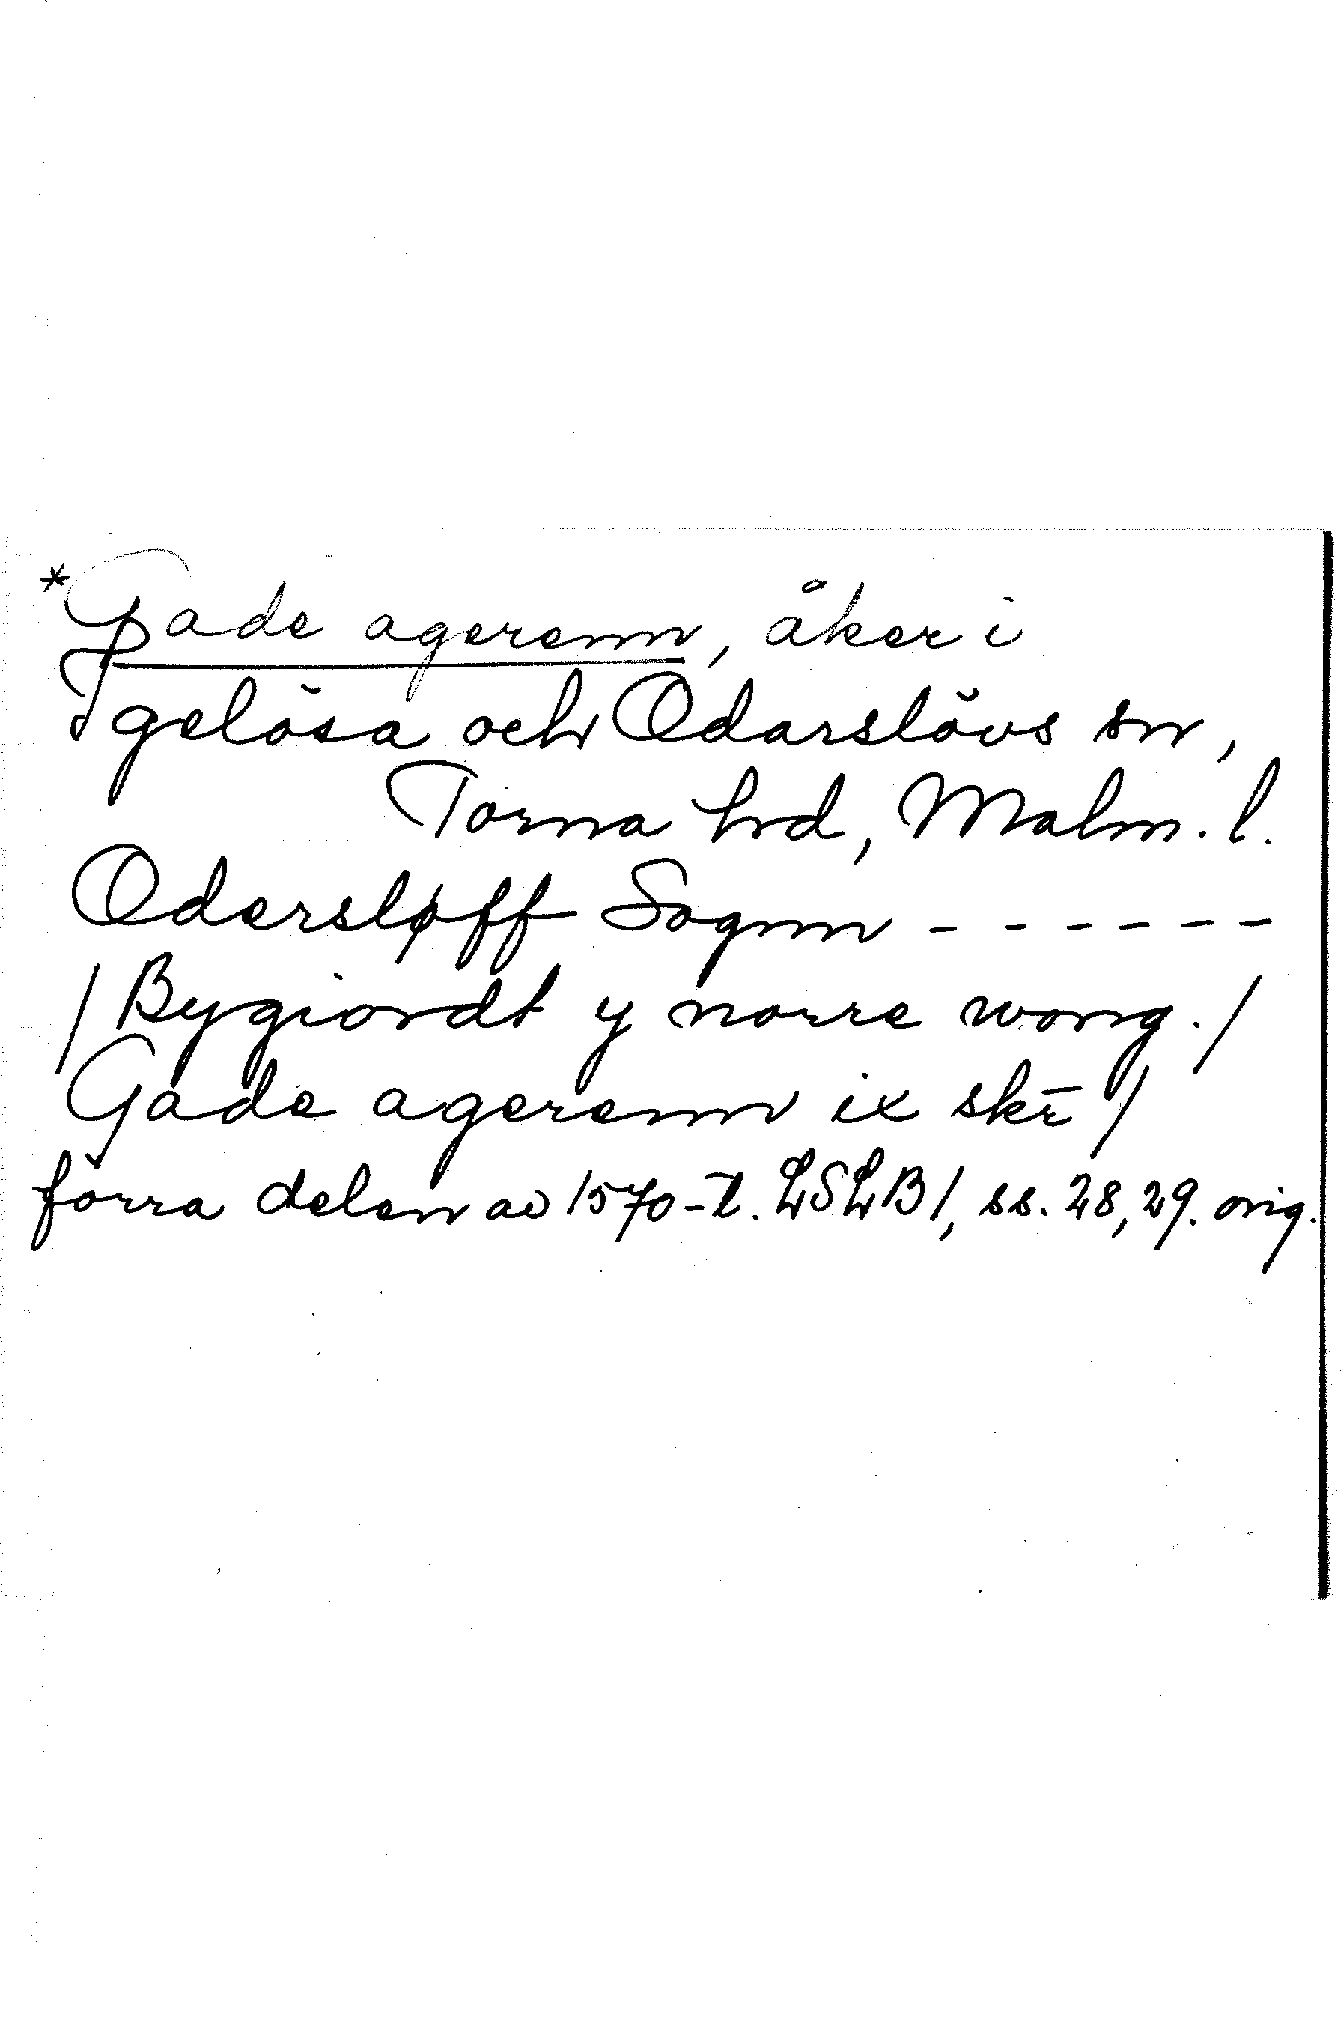 *Gade agerenn, åker i
Igelösa och Odarslövs sn,
Torna hrd, Malm. l.
Odersløff Sognn - - - - - -
/Bygiordt y norre wong./
Gade agerenn ix skr̄/
förra delen av 1570-t. LSLB1, ss. 28, 29. orig.